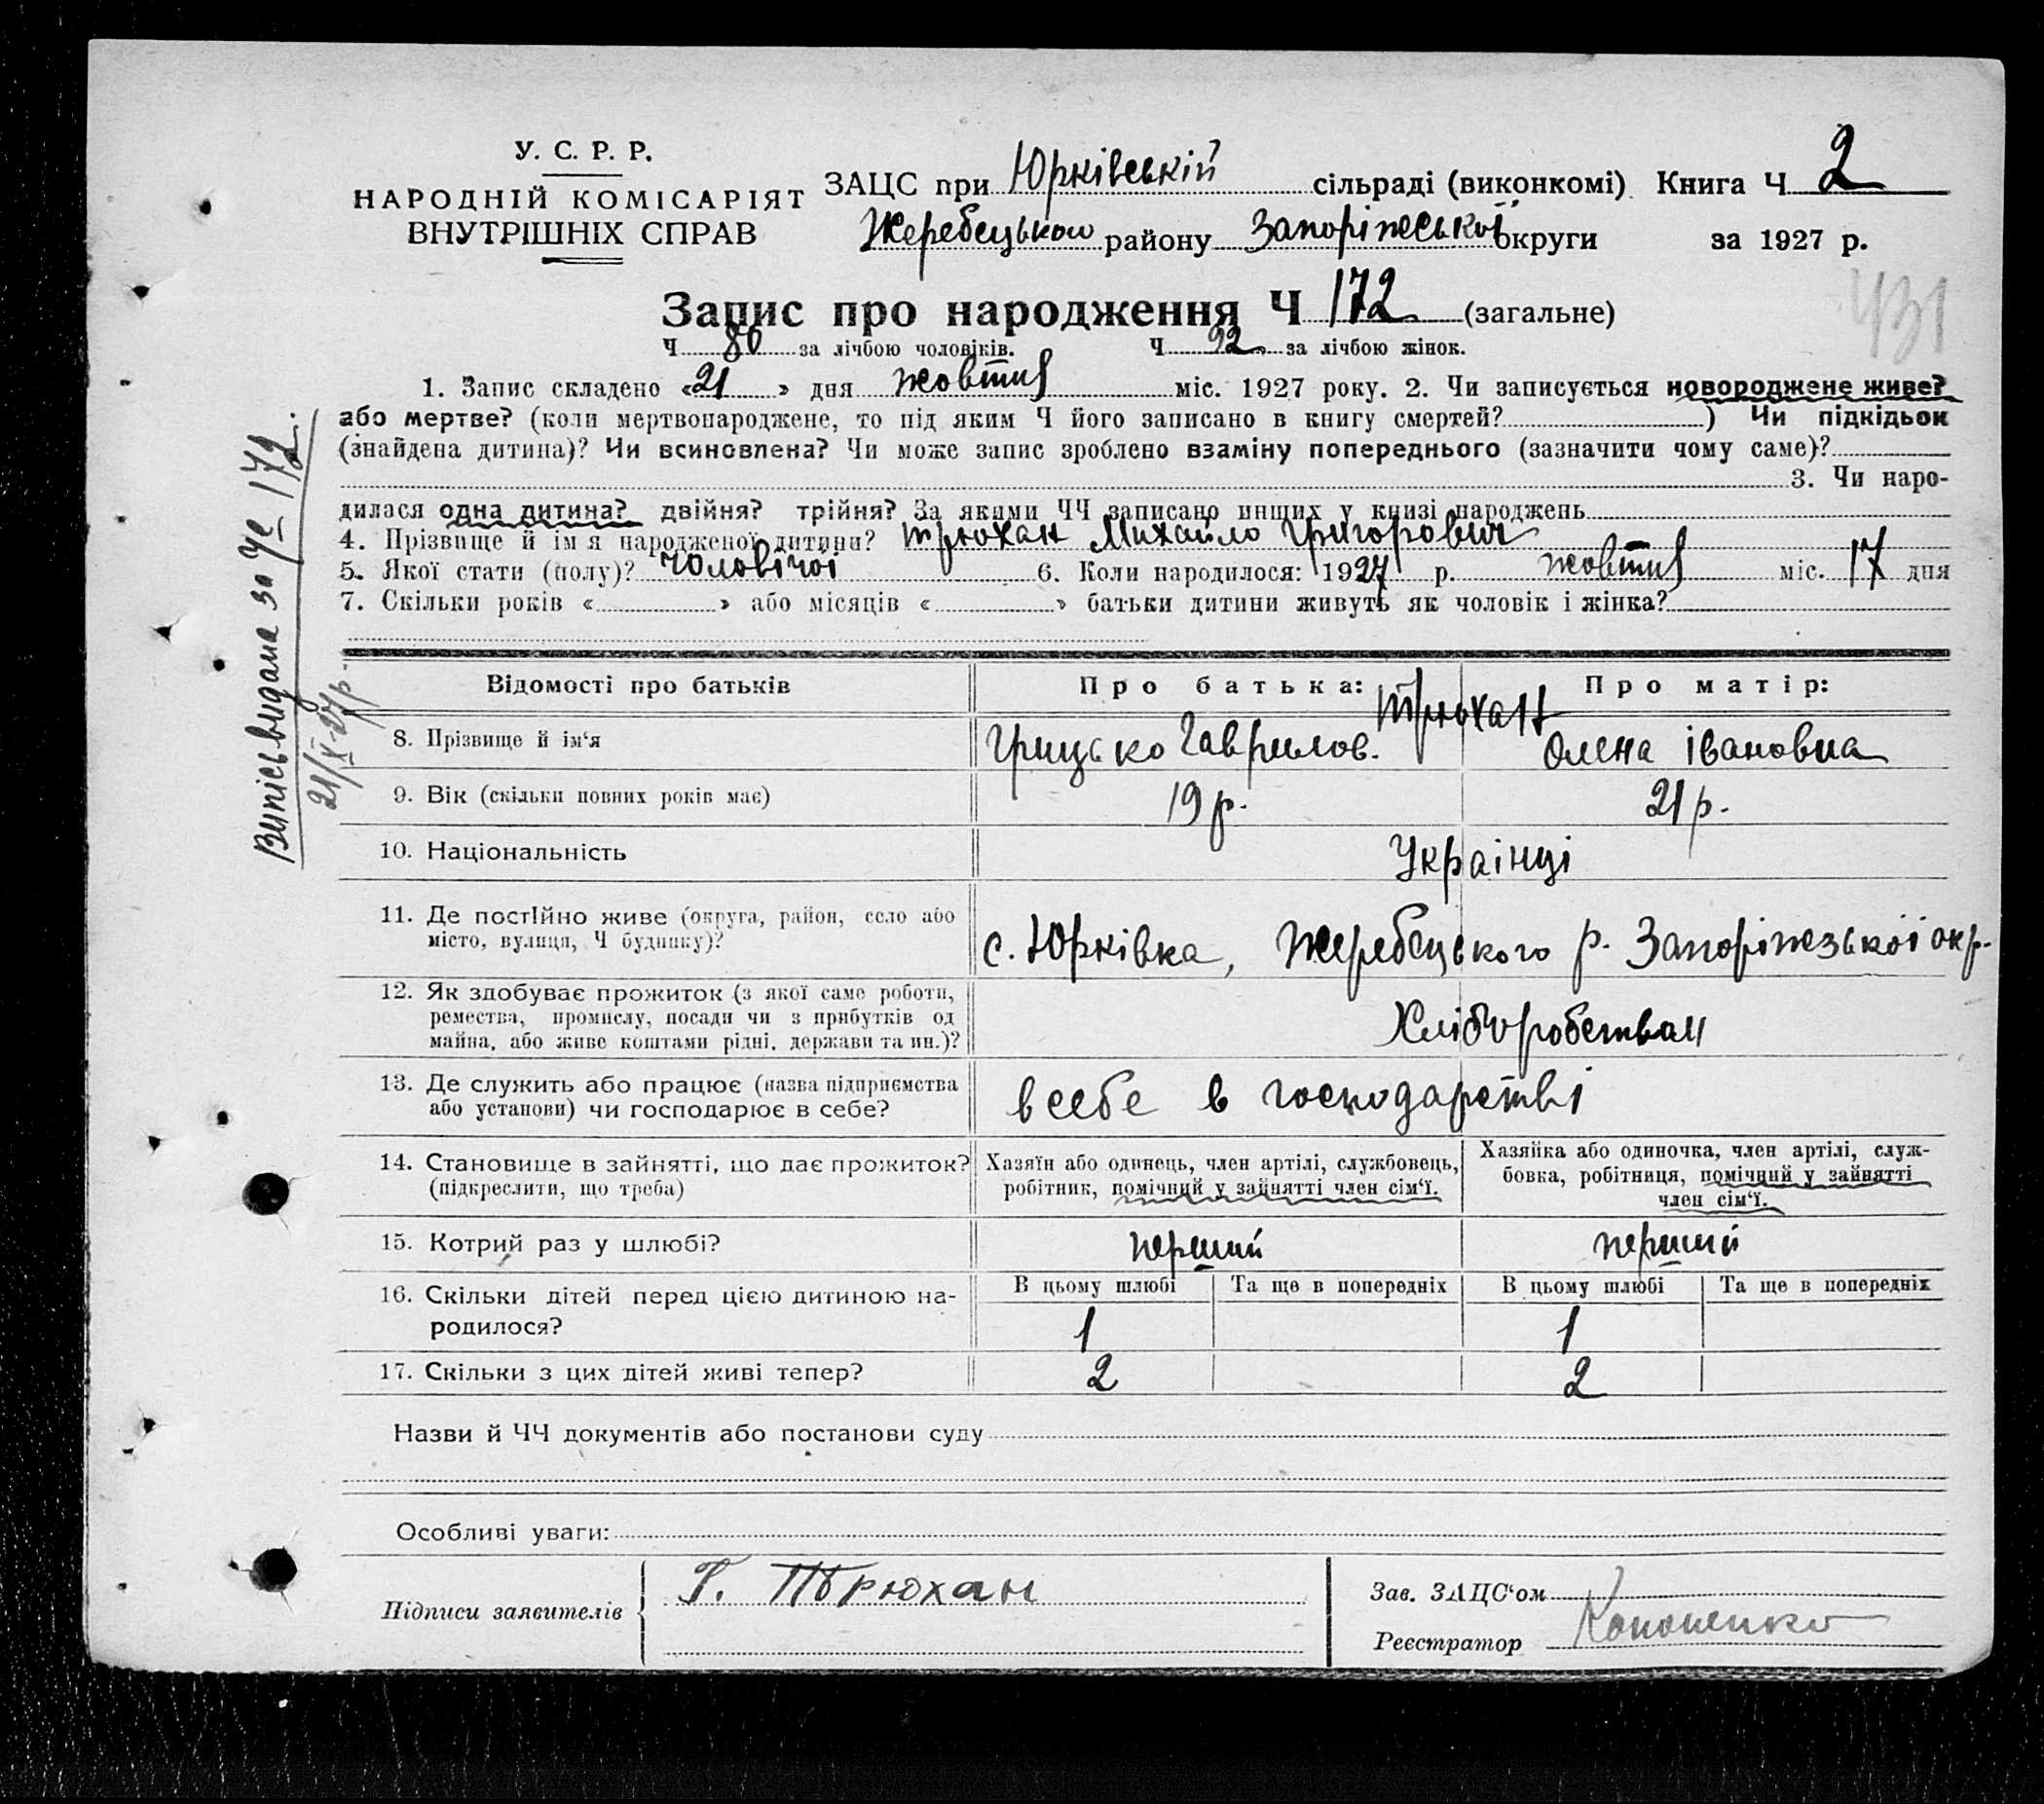 У. С. Р. Р.
НАРОДНІЙ КОМІСАРІЯТ
ВНУТРІШНІХ СПРАВ
ЗАЦС при Юрківській сільраді (виконкомі) Книга Ч 2
Жеребецького району Запоріжської округи за 1927 р.
431
Запис про народження Ч 172 (загальне)
Ч 80 за лічбою чоловіків. Ч 92 за лічбою жінок.
1. Запис складено «21» дня жовтня міс. 1927 року. 2. Чи записується новороджене живе?
або мертве? (коли мертвонароджене, то під яким Ч його записано в книгу смертей? ) Чи підкідьок
(знайдена дитина)? Чи всиновлена? Чи може запис зроблено взаміну попереднього (зазначити чому саме)?
3. Чи наро-
дилася одна дитина? двійня? трійня? За якими ЧЧ записано инших у книзі народжень
4. Прізвище й ім'я народженої дитини? Трюхан Михайло Григорович
5. Якої стати (полу)? чоловічоі 6. Коли народилося: 1927 р. жовтня міс. 17 дня
7. Скільки років « » або місяців « » батьки дитини живуть як чоловік і жінка?
Випісь видана за Че 172.
21/X-27р.
Відомості про батьків Про батька: Про матір:
Трюхан
8. Прізвище й ім'я Грицько Гаврилов. Олена Івановна
9. Вік (скільки повних років має) 19 р. 21 р.
10. Національність Украінці
11. Де постійно живе (округа, район, село або
місто, вулиця, Ч будинку)? с. Юрківка, Жеребецького р. Запоріжзькоі окр.
12. Як здобуває прожиток (з якої саме роботи,
ремества, промислу, посади чи з прибутків од
майна, або живе коштами рідні, держави та ин.)? Хліборобством
13. Де служить або працює (назва підприємства
або установи) чи господарює в себе? в себе в господарстві
14. Становище в зайнятті, що дає прожиток?
(підкреслити, що треба)
Хазяїн або одинець, член артілі, службовець,
робітник, помічний у зайнятті член сім'ї.
Хазяйка або одиночка, член артілі, служ-
бовка, робітниця, помічний у зайнятті
член сім'ї.
15. Котрий раз у шлюбі? перший перший
16. Скільки дітей перед цією дитиною на-
родилося?
В цьому шлюбі Та ще в попередніх В цьому шлюбі Та ще в попередніх
1 1
17. Скільки з цих дітей живі тепер? 2 2
Назви й ЧЧ документів або постанови суду
Особливі уваги:
Підписи заявителів Г. Трюхан
Зав. ЗАЦС'ом
Реєстратор Кононенко